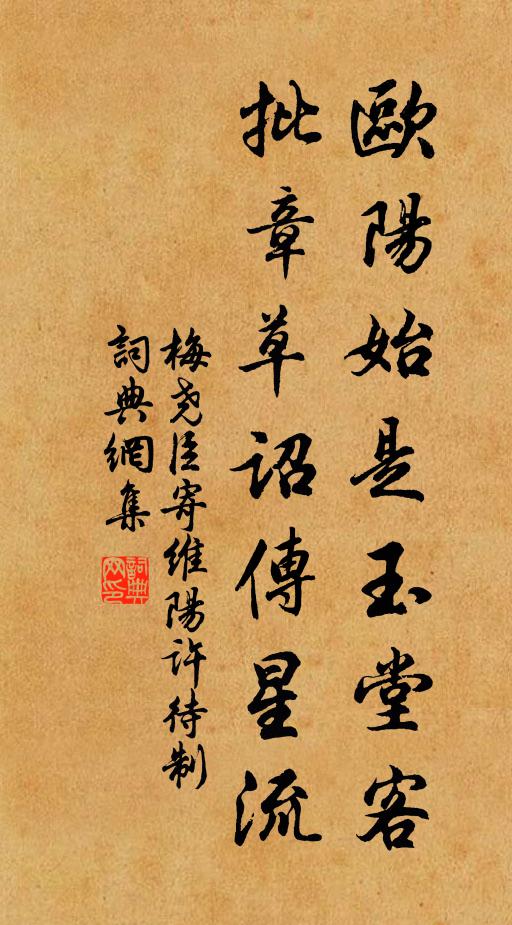 歐陽始是玉堂客
批章草詔傳星流
梅堯臣寄維陽許待制
詞典網集
詞典網印